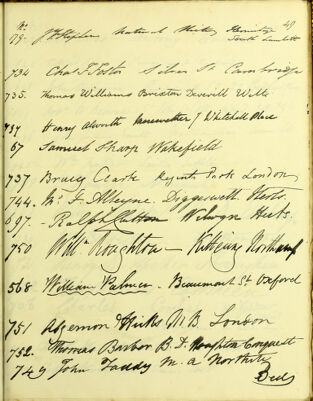 No. 49
179. J F Stephens Natural History Hermitage
South Lambeth
734 Chas. F. Foster Silver St Cambridge
735. Thomas Williams Brixton Deverell Wilts
737 Henry Alworth Merewether 7 Whitehall Place
67 Samuel Sharp Wakefield
737 Bracy Clark Regents Park London
744. Mr. J. Alleyne. Digswell Herts.
697. Ralph Welwyn Herts.
750 Willm Roughton — Kettering Northamp
568 William Palmer. Beaumont St Oxford
751 Algernon Hicks M B London
752. Thomas Barber B. D. Houghton Conquest
749 John Taddy M. A Northill
Beds